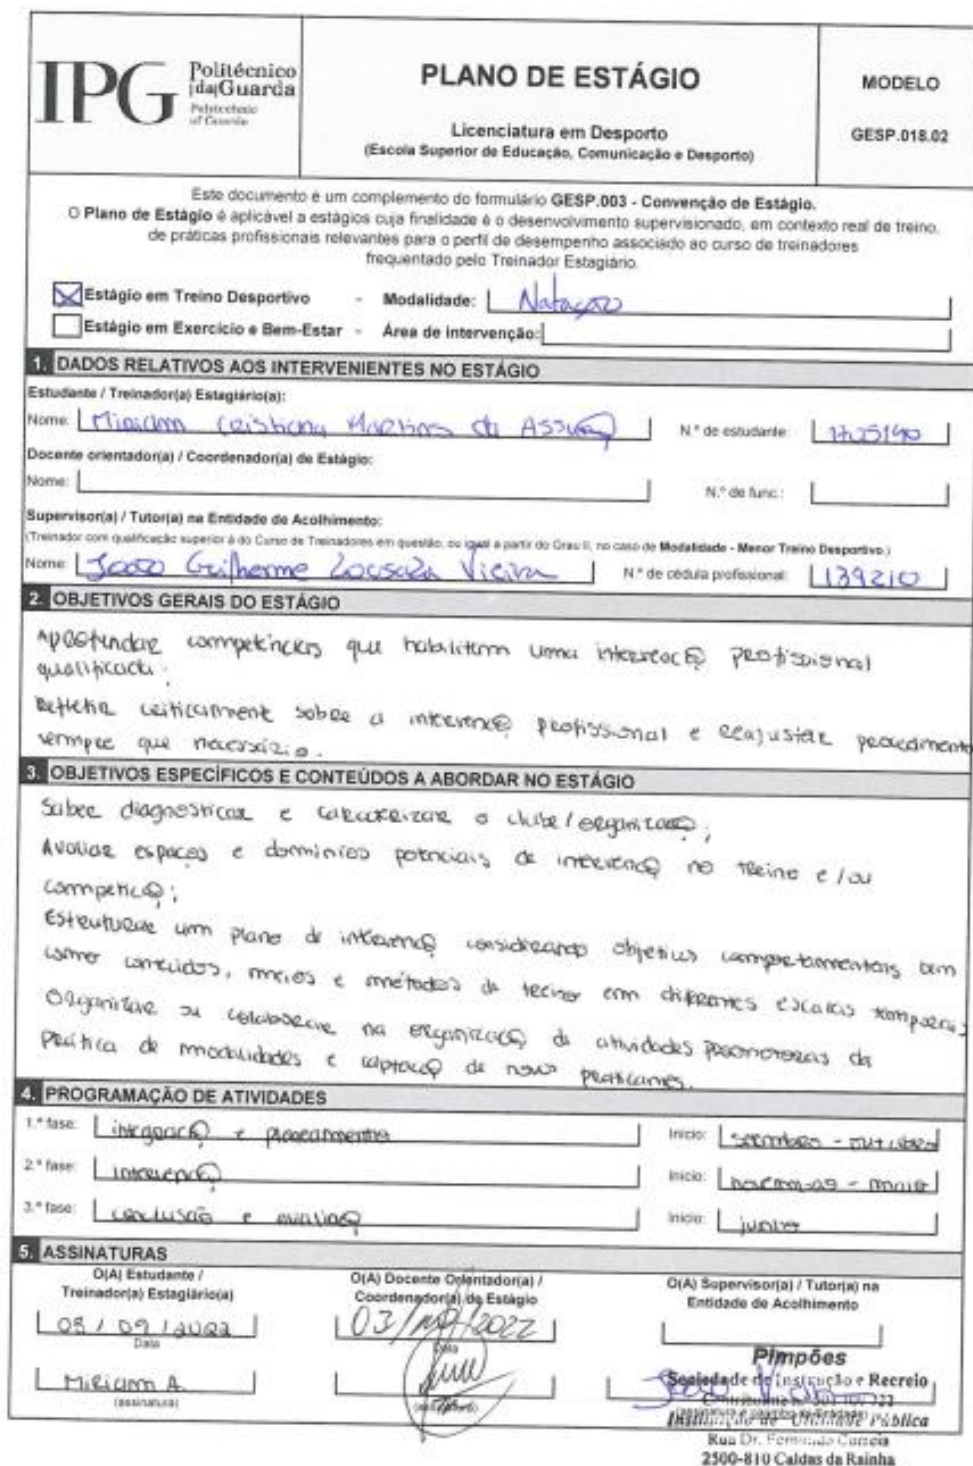 IPG Politécnico
|da|Guarda
Polytechnic
of Guarda
PLANO DE ESTÁGIO
Licenciatura em Desporto
(Escola Superior de Educação, Comunicação e Desporto)
MODELO
GESP.018.02
Este documento é um complemento do formulário GESP.003 - Convenção de Estágio.
O Plano de Estágio é aplicável a estágios cuja finalidade é o desenvolvimento supervisionado, em contexto real de treino,
de práticas profissionais relevantes para o perfil de desempenho associado ao curso de treinadores
frequentado pelo Treinador Estagiário.
Estágio em Treino Desportivo - Modalidade: Natação
Estágio em Exercício e Bem-Estar - Área de intervenção:
1. DADOS RELATIVOS AOS INTERVENIENTES NO ESTÁGIO
Estudante / Treinador(a) Estagiário(a):
Nome: Miriam Cristiana Martins de Assunção N.º de estudante:
Docente orientador(a) / Coordenador(a) de Estágio:
Nome: N.º de func.:
Supervisor(a) / Tutor(a) na Entidade de Acolhimento:
(Treinador com qualificação superior à do Curso de Treinadores em questão, ou igual a partir do Grau II, no caso de Modalidade - Menor Treino Desportivo.)
Nome: João Guilherme Lousada Vieira N.º de cédula profissional: 139210
2. OBJETIVOS GERAIS DO ESTÁGIO
Aprofundar competências que habilitem uma intervenção profissional
qualificada;
Refletir criticamente sobre a intervenção profissional e reajustar procedimento
sempre que necessário.
3. OBJETIVOS ESPECÍFICOS E CONTEÚDOS A ABORDAR NO ESTÁGIO
Saber diagnosticar e caraterizar o clube/organização;
Avaliar espaços e domínios potenciais de intervenção no treino e/ou
competição;
Estruturar um plano de intervenção considerando objetivos comportamentais bem
como conteúdos, meios e métodos de treino em diferentes escalas temporais
Organizar ou colaborar na organização de atividades promotoras da
prática de modalidades e captação de novos praticantes.
4. PROGRAMAÇÃO DE ATIVIDADES
1.ª fase: integração e planeamento Início: setembro - outubro
2.ª fase: intervenção Início: novembro - maio
3.ª fase: conclusão e avaliação Início: junho
5. ASSINATURAS
O(A) Estudante /
Treinador(a) Estagiário(a)
O(A) Docente Orientador(a) /
Coordenador(a) de Estágio
O(A) Supervisor(a) / Tutor(a) na
Entidade de Acolhimento
05/09/2022
Data
03/ /2022
Data
Miriam A.
(assinatura)
Pimpões
Sociedade de Instrução e Recreio
João Vieira
Instituição de Utilidade Pública
Rua Dr. Fernando Correia
2500-810 Caldas da Rainha